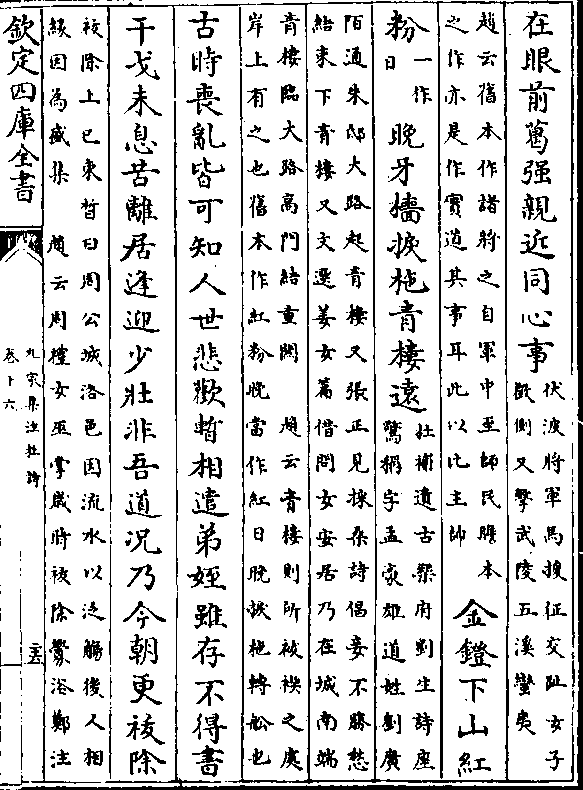 在眼前葛强親近同心事
伏波將軍馬援征交趾女子
徵側又擊武陵五溪蠻夷
趙云舊本作諸將之自軍中至師民贍本
之作亦是作實道其事耳此以比主帥
金鐙下山紅
粉
一作
日
晚牙檣捩柂青樓遠
杜補遺古樂府劉生詩座
驚稱字孟豪雄道姓劉廣
陌通朱邸大路起青樓又張正見採桑詩倡妾不勝愁
結束下青樓又文選美女篇借問女安居乃在城南端
青樓臨大路高門結重闗 趙云青樓則所被禊之處
岸上有之也舊本作紅粉晚當作紅日晚捩柂轉船也
古時喪亂皆可知人世悲歡暫相遣弟姪雖存不得書
干戈未息苦離居逢迎少壯非吾道况乃今朝更祓除
祓除上巳束晳曰周公城洛邑因流水以泛觴後人相
緣因為盛集 趙云周禮女巫掌歲時祓除釁浴鄭注
欽定四庫全書
九家集注杜詩
卷十六